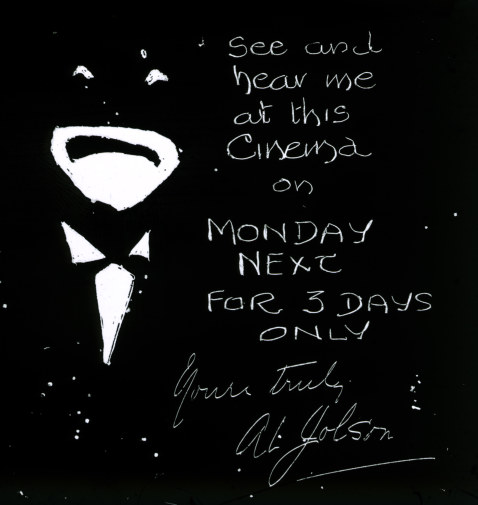 See and
hear me
at this
Cinema
on
MONDAY
NEXT
FOR 3 DAYS
ONLY
Yours truly,
Al Jolson